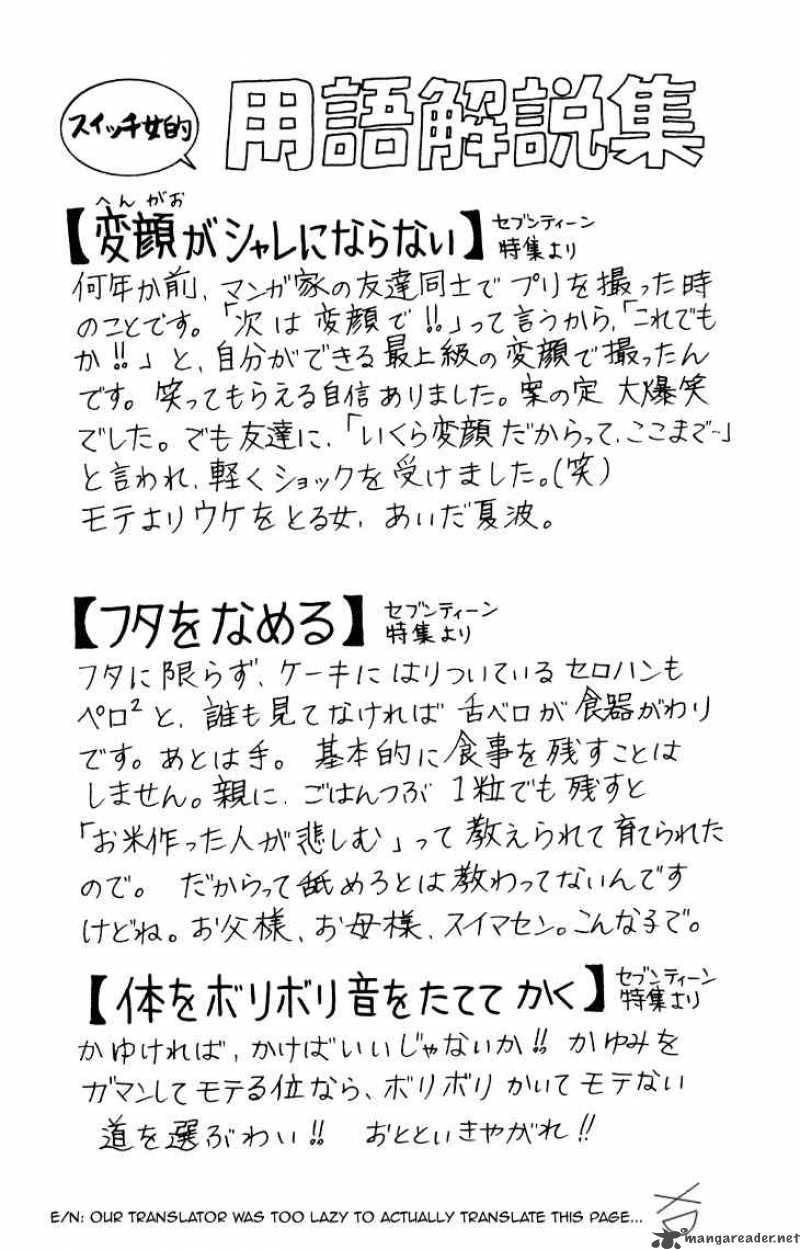 スイッチ女的
用語解説集
へん がお
【変顔がシャレにならない】
セブンティーン
特集より
何年か前、マンガ家の友達同士でプリを撮った時
のことです。「次は変顔で!!」って言うから、「これでも
か!!」と、自分ができる最上級の変顔で撮ったん
です。笑ってもらえる自信ありました。案の定 大爆笑
でした。でも友達に、「いくら変顔だからって、ここまで…」
と言われ、軽くショックを受けました。(笑)
モテよりウケをとる女、あいだ夏波。
【フタをなめる】
セブンティーン
特集より
フタに限らず、ケーキにはりついているセロハンも
ペロ²と、誰も見てなければ舌ベロが食器がわり
です。あとは手。基本的に食事を残すことは
しません。親に、ごはんつぶ1粒でも残すと
「お米作った人が悲しむ」って教えられて育てられた
ので。だからって舐めろとは教わってないんです
けどね。お父様、お母様、スイマセン。こんな子で。
【体をボリボリ音をたててかく】
セブンティーン
特集より
かゆければ、かけばいいじゃないか!! かゆみを
ガマンしてモテる位なら、ボリボリかいてモテない
道を選ぶわい!! おとといきやがれ!!
E/N: OUR TRANSLATOR WAS TOO LAZY TO ACTUALLY TRANSLATE THIS PAGE...
mangareader.net